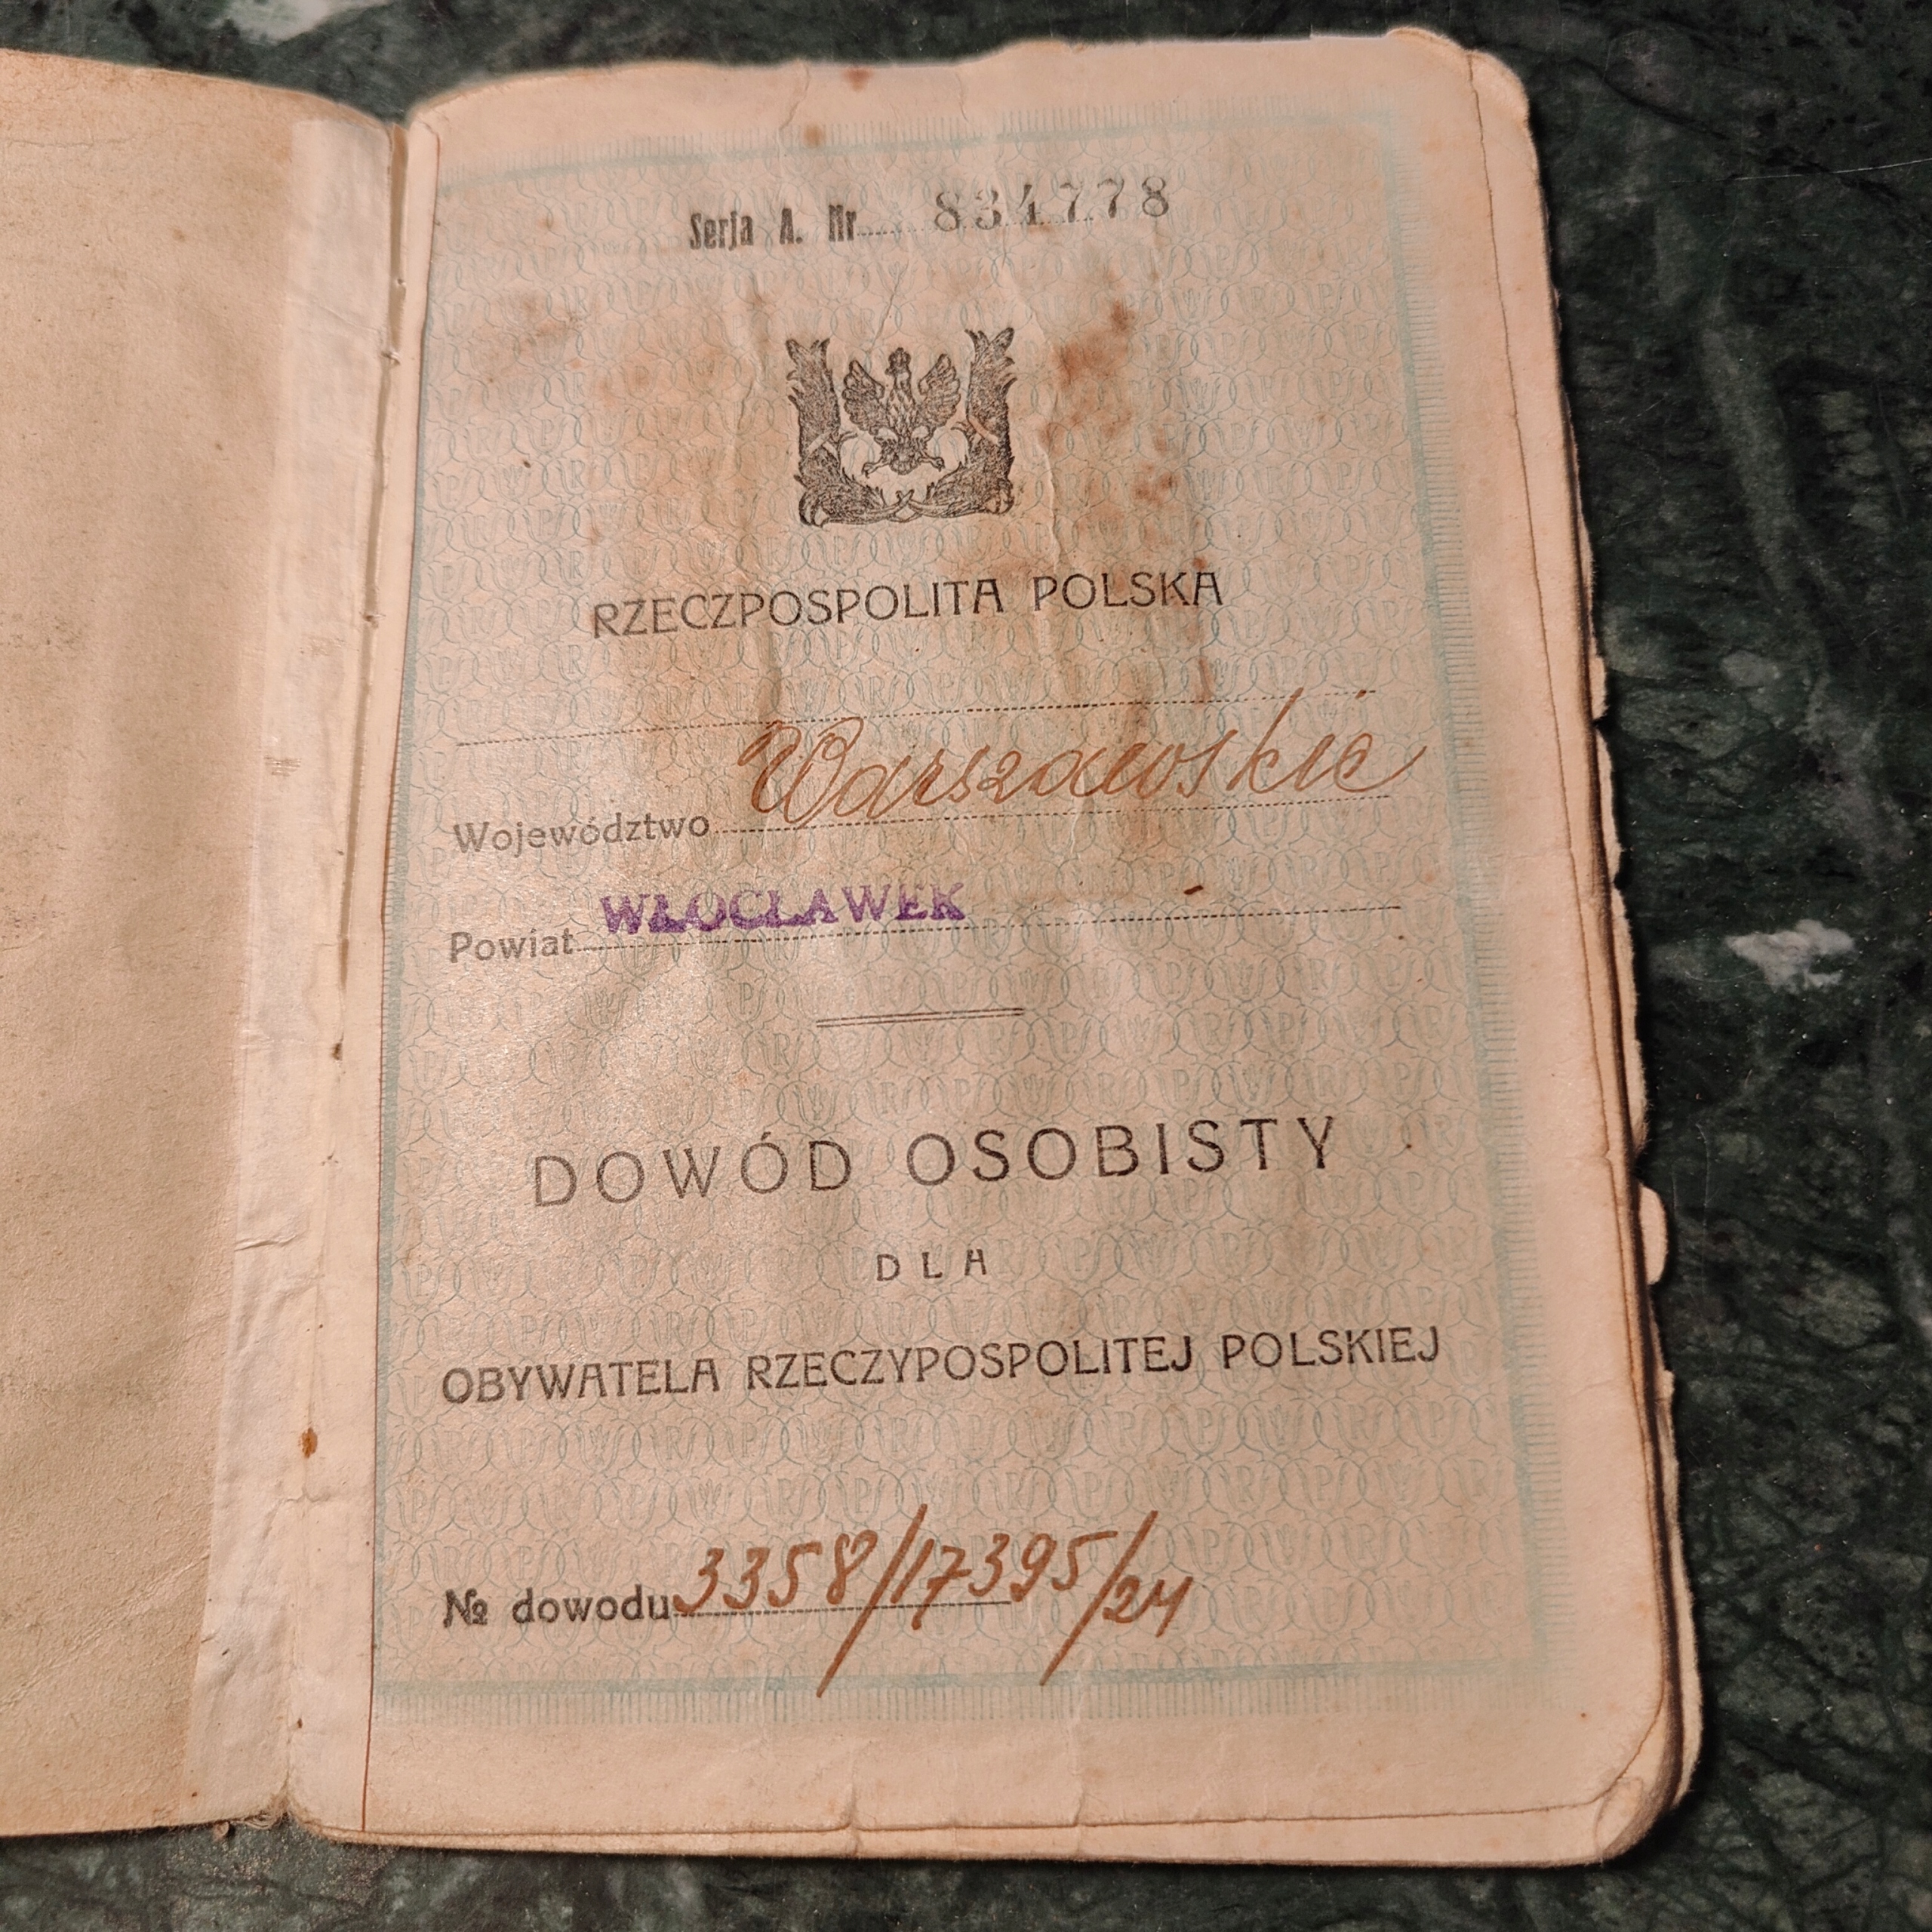 Serja A. Nr 834778
RZECZPOSPOLITA POLSKA
Województwo Warszawskie
Powiat WŁOCŁAWEK
DOWÓD OSOBISTY
DLA
OBYWATELA RZECZYPOSPOLITEJ POLSKIEJ
№ dowodu 3358/17395/24